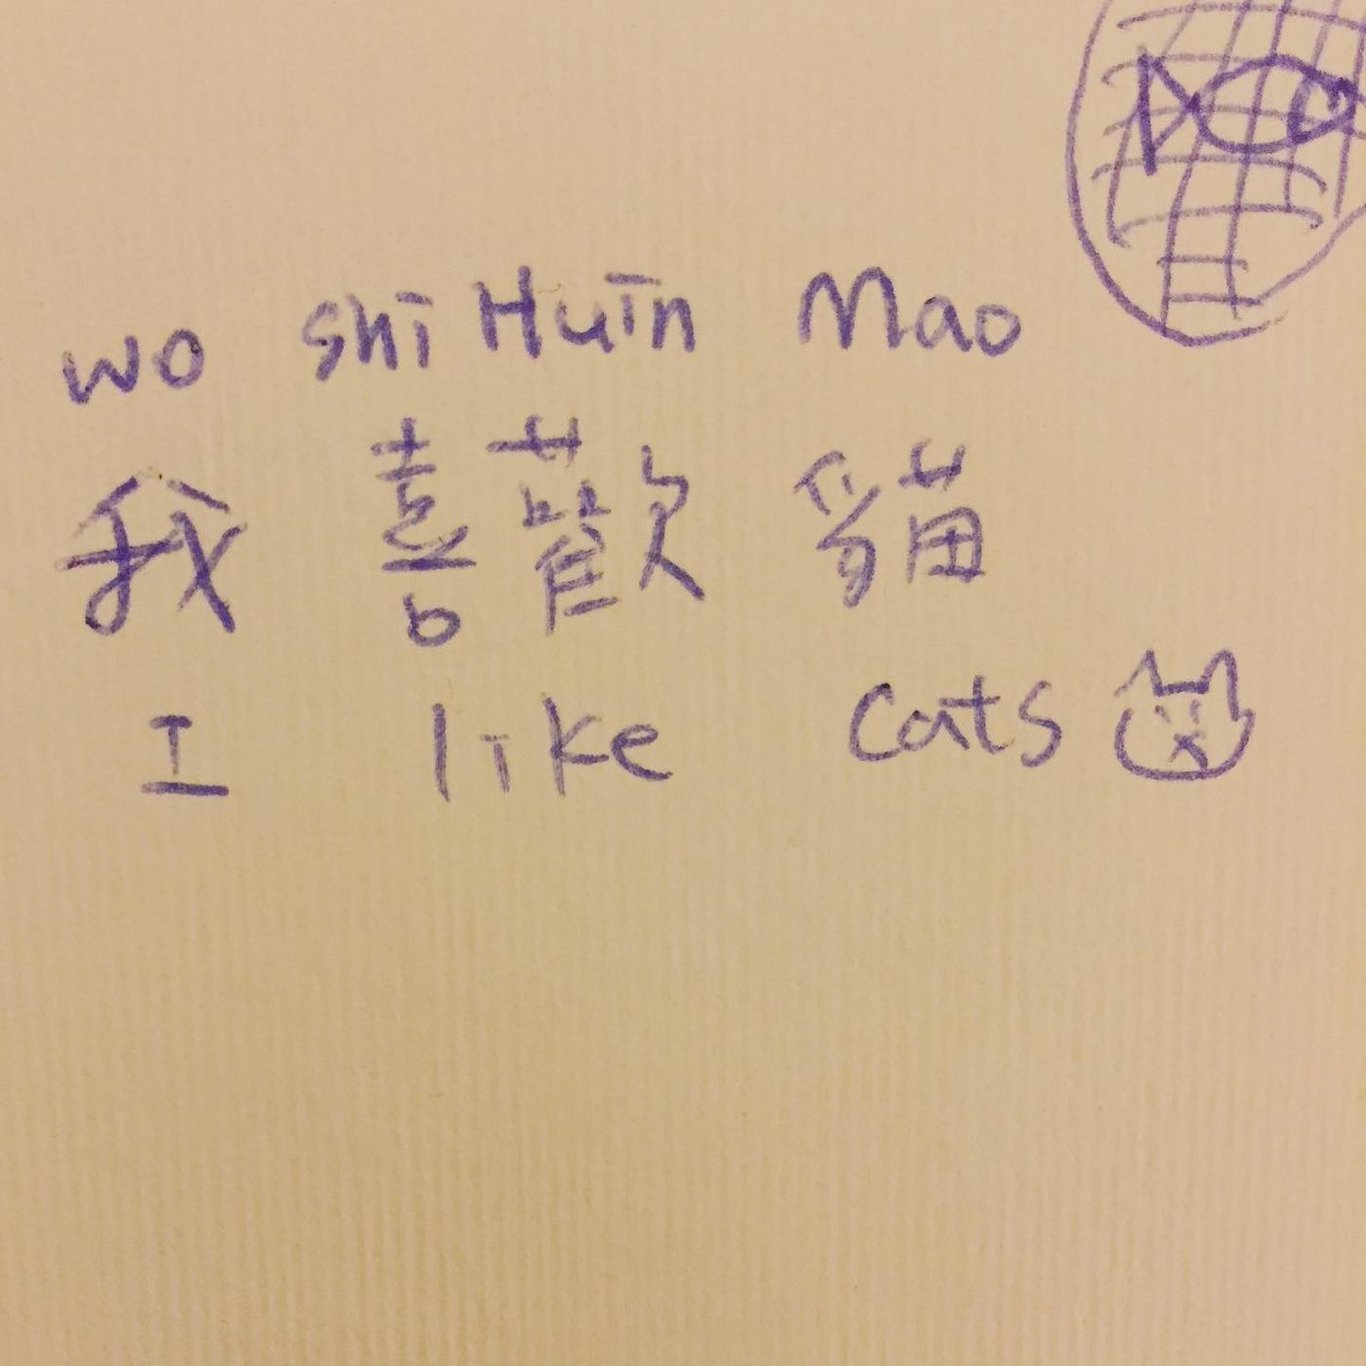 wo shi Huin Mao
我 喜歡 貓
I like cats